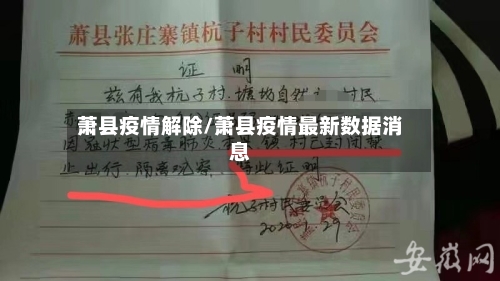 萧县张庄寨镇杭子村村民委员会
证 明
兹有我杭子村.塘坊自然 村民
萧县疫情解除/萧县疫情最新数据消
息
因冠状型病毒肺炎 镇 村已封闭禁
止出行.隔离观察. 此证明
杭子村民委员会
2020.1.29
安徽网